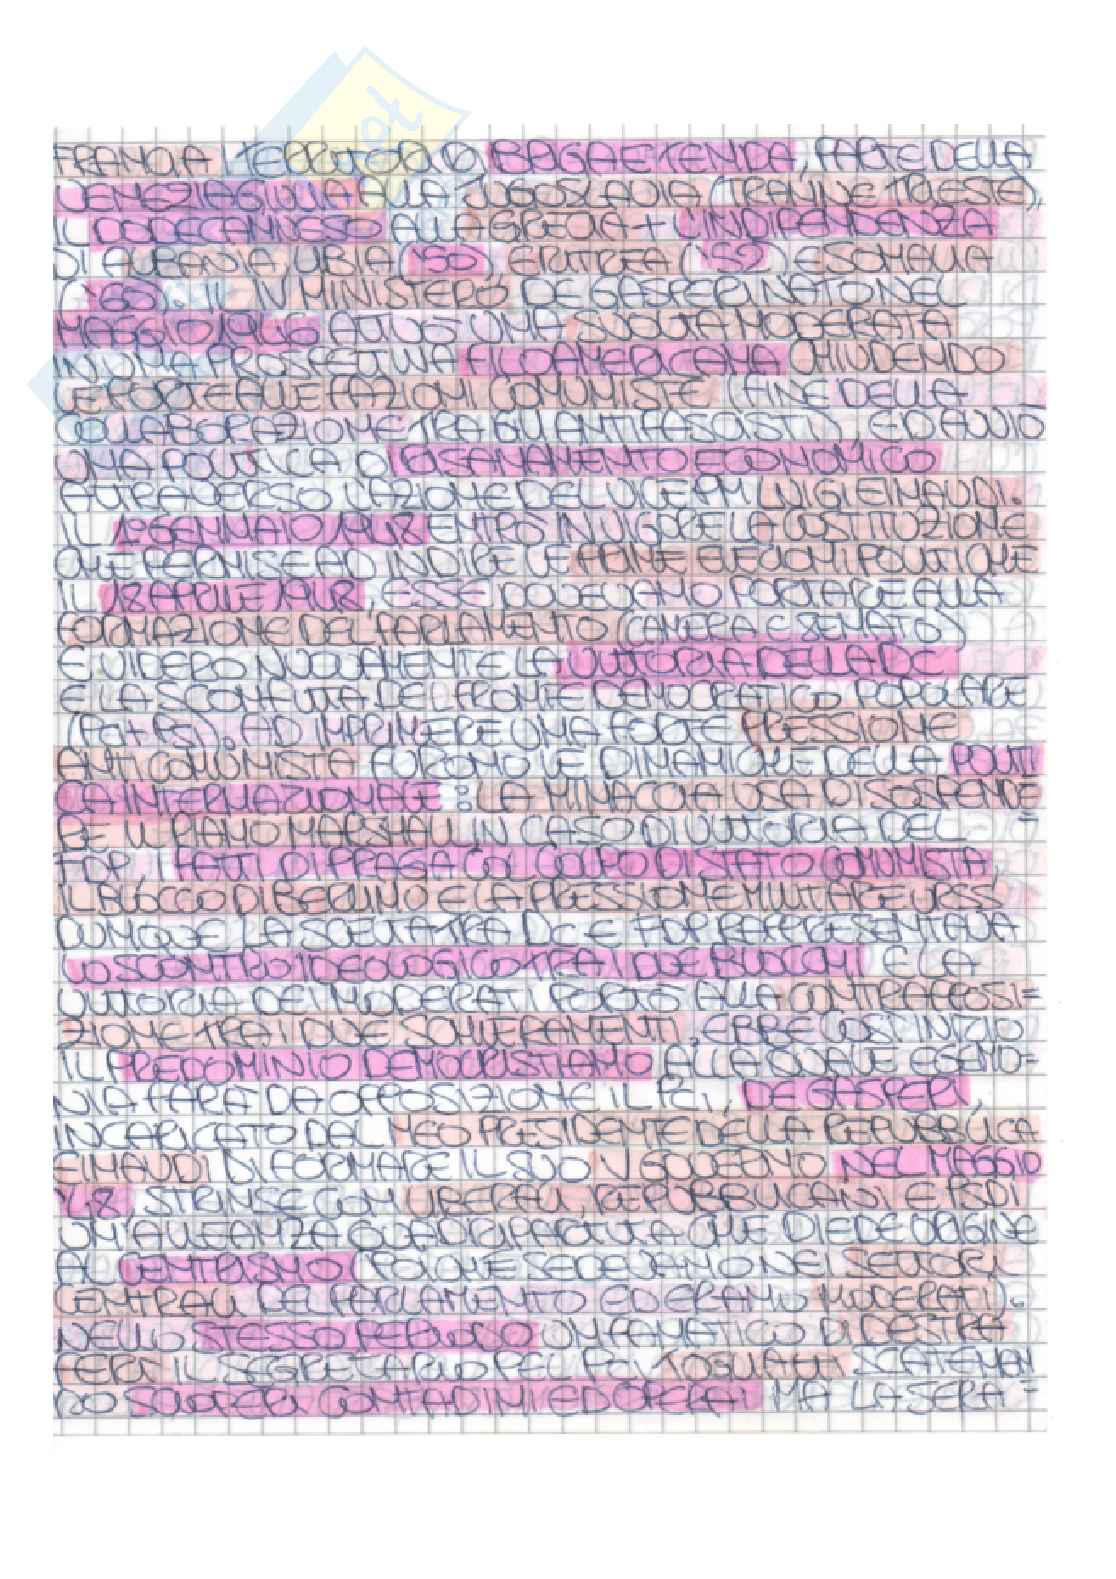 FRANCIA I TERRITORI DI BRIGA E TENDA, PARTE DELLA
VENEZIA GIULIA ALLA JUGOSLAVIA (TRANNE TRIESTE),
IL DODECANNESO ALLA GRECIA + L'INDIPENDENZA
DI ALBANIA LIBIA ('50), ERITREA ('52) E SOMALIA
('60). IL IV MINISTERO DE GASPERI, NATO NEL
MAGGIO 1946 ATTUÒ UNA SVOLTA MODERATA
IN UNA PROSPETTIVA FILOAMERICANA CHIUDENDO
LE PORTE ALLE FAZIONI COMUNISTE (FINE DELLA
COLLABORAZIONE TRA GLI ANTIFASCISTI), ED AVVIÒ
UNA POLITICA DI RISANAMENTO ECONOMICO
ATTRAVERSO L'AZIONE DEL VICE PM LUIGI EINAUDI.
IL 1° GENNAIO 1948 ENTRÒ IN VIGORE LA COSTITUZIONE
CHE PERMISE AD INDIRE LE PRIME ELEZIONI POLITICHE
IL 18 APRILE 1948, ESSE DOVEVANO PORTARE ALLA
FORMAZIONE DEL PARLAMENTO (CAMERA E SENATO)
E VIDERO NUOVAMENTE LA VITTORIA DELLA DC
E LA SCONFITTA DEL FRONTE DEMOCRATICO POPOLARE
(PCI + PSI). AD IMPRIMERE UNA FORTE PRESSIONE
ANTICOMUNISTA FURONO LE DINAMICHE DELLA POLITI
CA INTERNAZIONALE: LA MINACCIA USA DI SOSPENDE
RE IL PIANO MARSHALL IN CASO DI VITTORIA DEL =
FDP, I FATTI DI PRAGA COL COLPO DI STATO COMUNISTA,
IL BLOCCO DI BERLINO E LA PRESSIONE MILITARE URSS
DUNQUE LA SCELTA TRA DC E FDP RAPPRESENTAVA
LO SCONTRO IDEOLOGICO TRA I DUE BLOCCHI E LA
VITTORIA DEI MODERATI PORTÒ ALLA CONTRAPPOSI=
ZIONE TRA I DUE SCHIERAMENTI, EBBE COSÌ INIZIO
IL PREDOMINIO DEMOCRISTIANO ALLA QUALE EGEMO=
NIA FARÀ DA OPPOSIZIONE IL PCI, DE GASPERI,
INCARICATO DAL NEO PRESIDENTE DELLA REPUBBLICA
EINAUDI DI FORMARE IL SUO V GOVERNO NEL MAGGIO
'48 STRINSE CON LIBERALI, REPUBBLICANI E PSDI
UN'ALLEANZA QUADRIPARTITA CHE DIEDE ORIGINE
AL CENTRISMO (POICHÉ SEDEVANO NEI SETTORI
CENTRALI DEL PARLAMENTO ED ERANO MODERATI).
NELLO STESSO PERIODO UN FANATICO DI DESTRA
FERÌ IL SEGRETARIO DEL PCI TOGLIATTI SCATENAN
DO SCIOPERI CONTADINI ED OPERAI MA LA SERA =